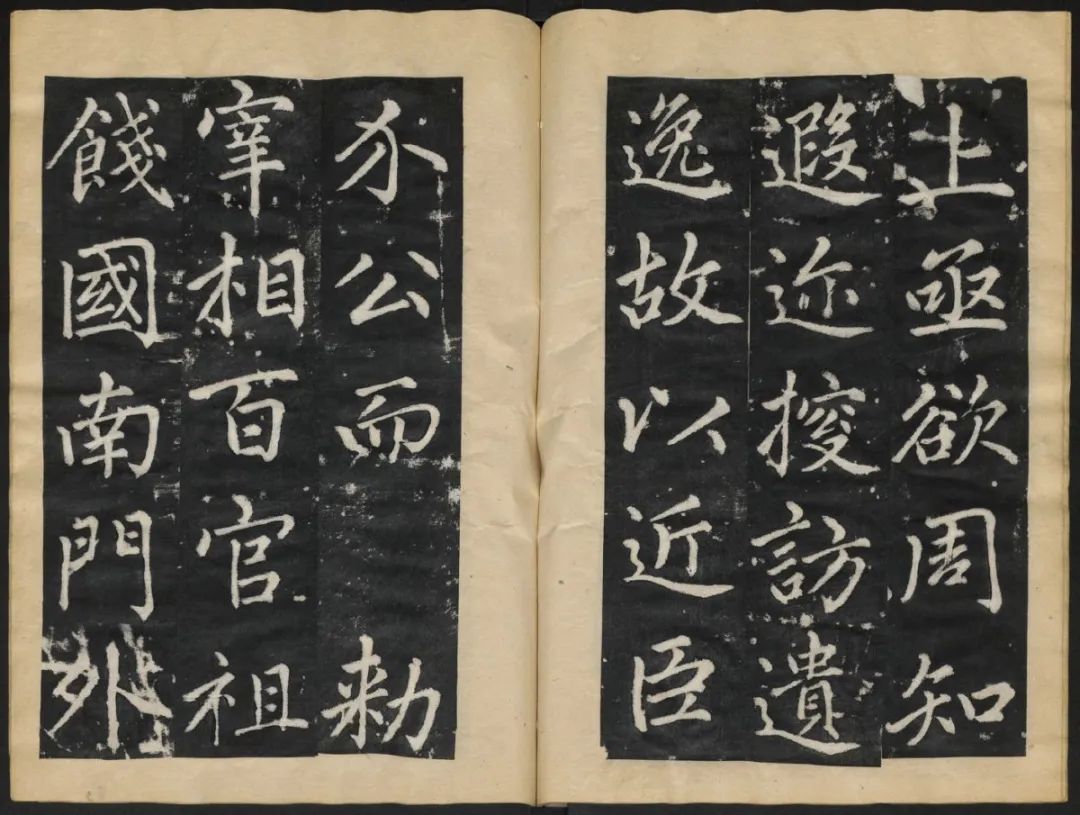 上亟欲周知
遐迩搜訪遺
逸故以近臣
公而勑
宰相百官祖
餞國南門外